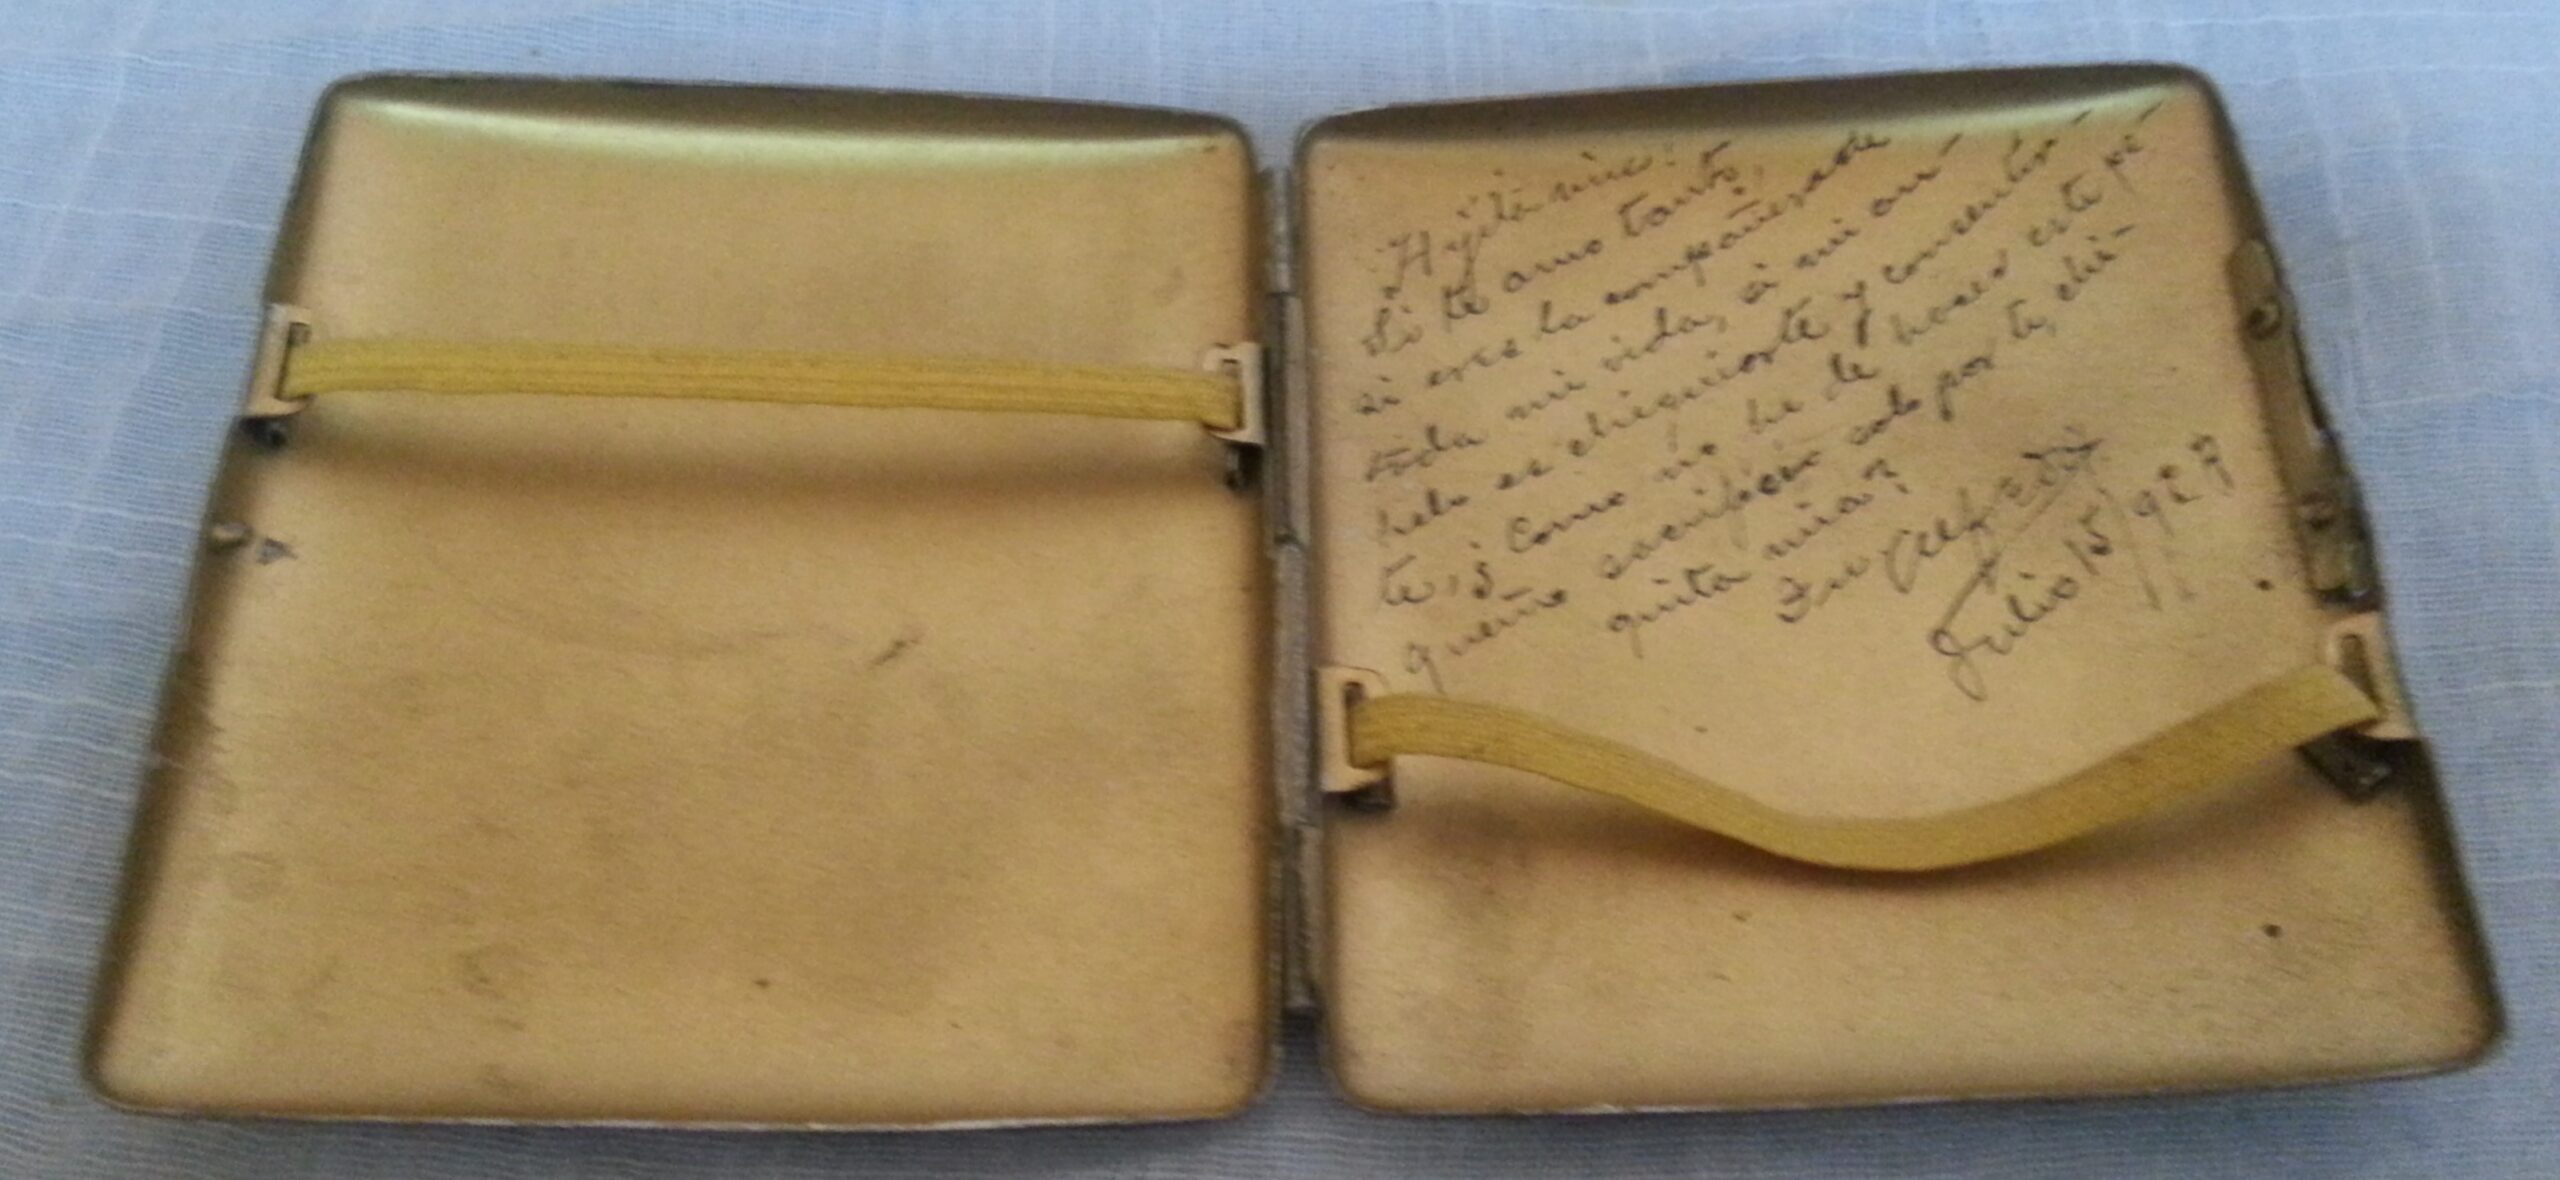 Hijita mia:
Si te amo tanto,
si eres la compañera de
toda mi vida, si mi an-
helo es chiquiarte y consentir-
te, ¿como no he de hacer este pe-
queño sacrificio solo por ti, chi-
quita mia?
Tu Alfredo
Julio 15/927